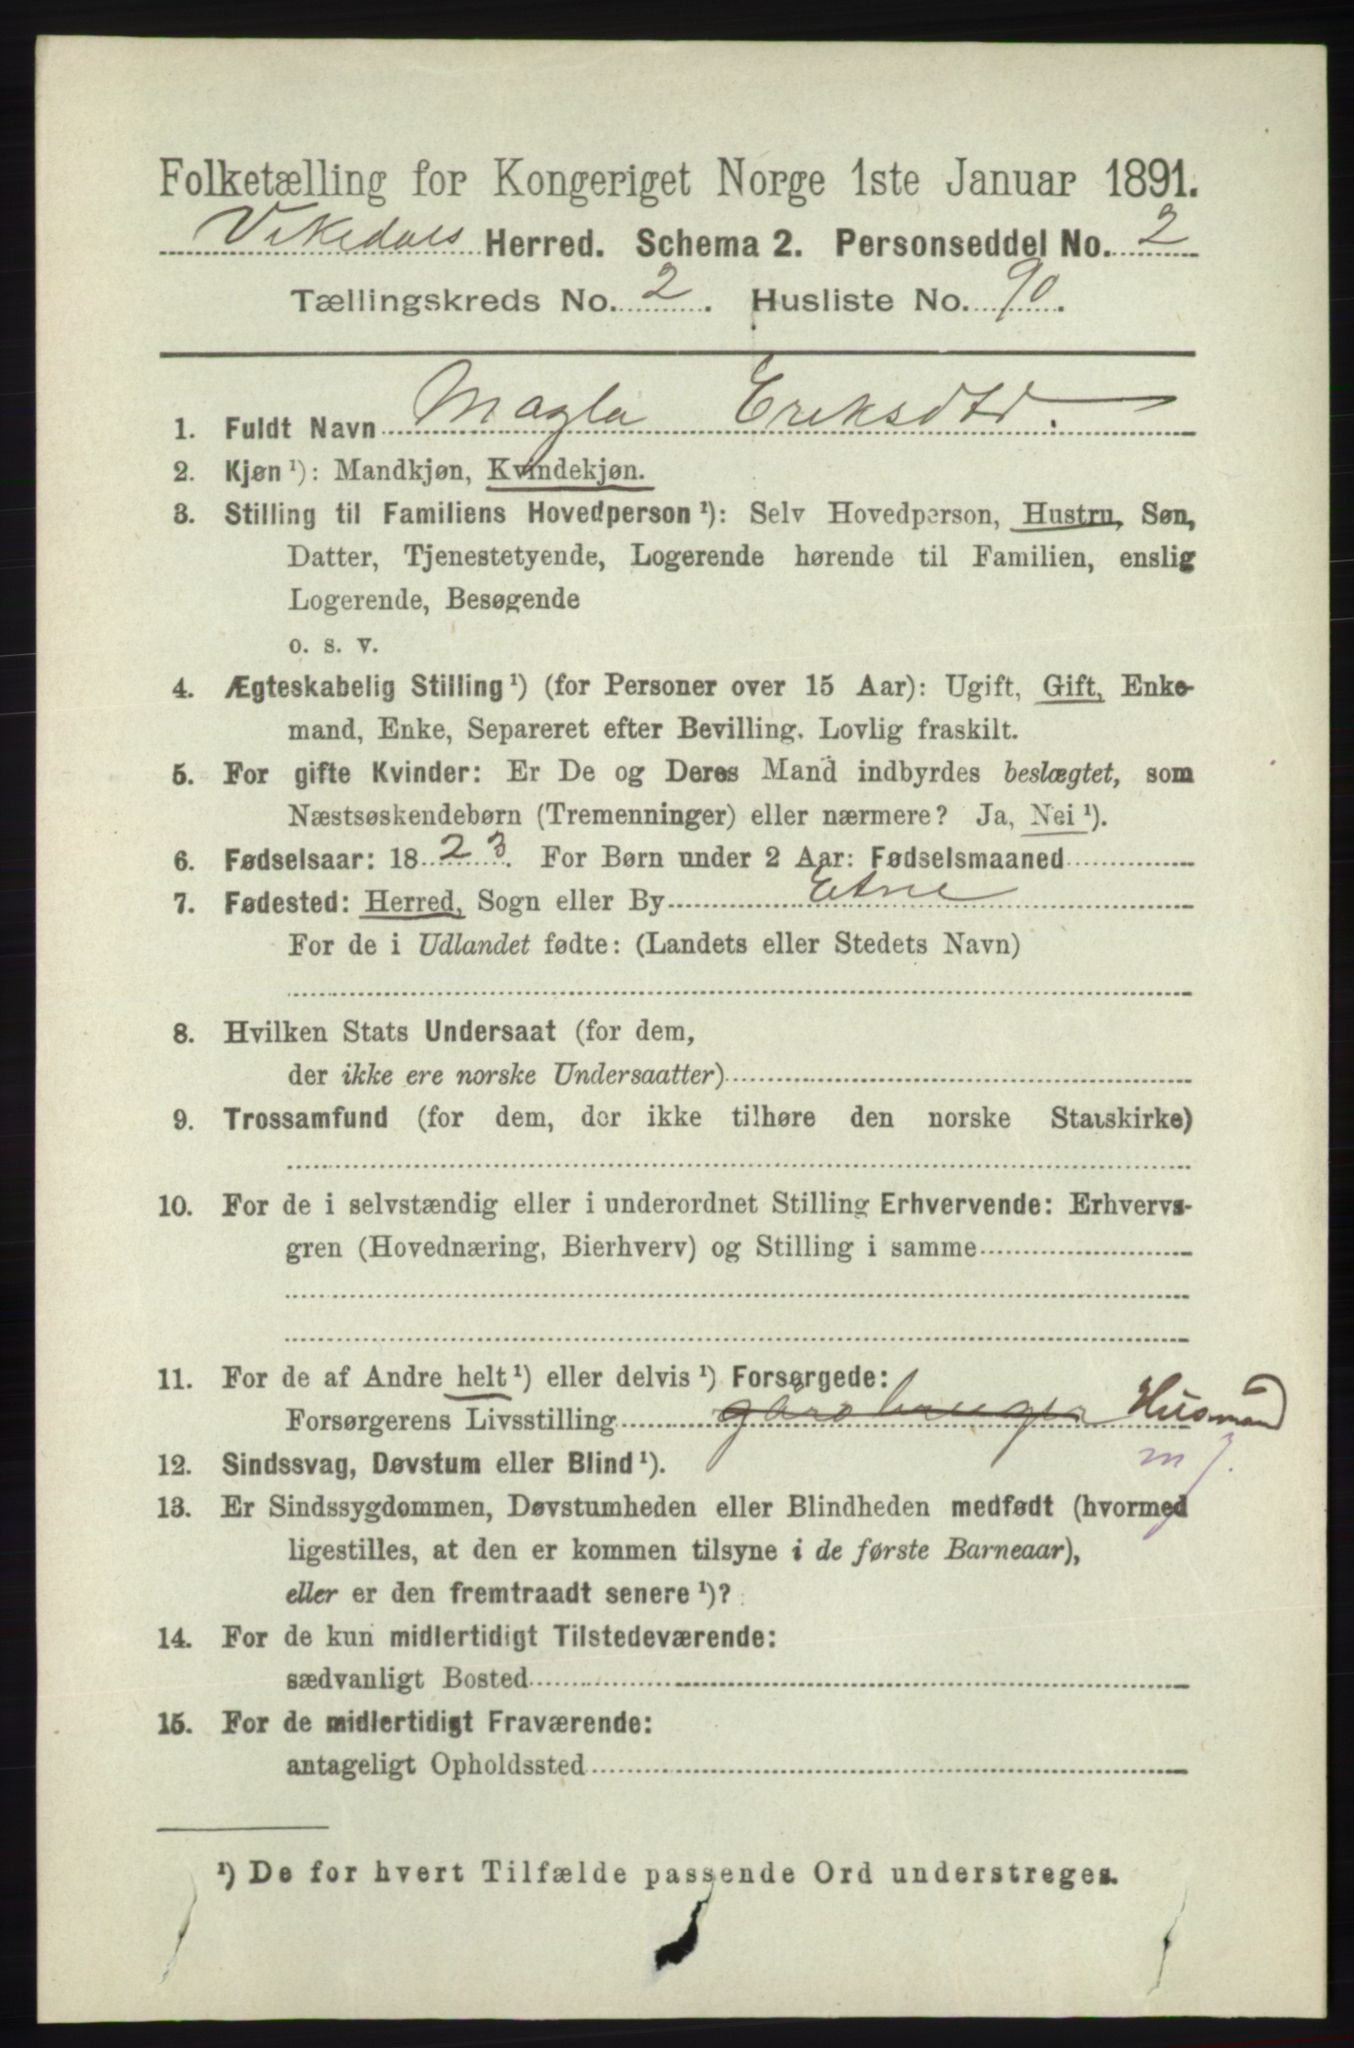 Folketælling for Kongeriget Norge 1ste Januar 1891.
Vikedals Herred. Schema 2. Personseddel No. 2
Tællingskreds No. 2. Husliste No. 90.
1. Fuldt Navn Magla Eriksdtr.
2. Kjøn ¹): Mandkjøn, Kvindekjøn.
3. Stilling til Familiens Hovedperson ¹): Selv Hovedperson, Hustru, Søn,
Datter, Tjenestetyende, Logerende hørende til Familien, enslig
Logerende, Besøgende
o. s. v.
4. Ægteskabelig Stilling ¹) (for Personer over 15 Aar): Ugift, Gift, Enke-
mand, Enke, Separeret efter Bevilling. Lovlig fraskilt.
5. For gifte Kvinder: Er De og Deres Mand indbyrdes beslægtet, som
Næstsøskendebørn (Tremenninger) eller nærmere? Ja, Nei ¹).
6. Fødselsaar: 1823. For Børn under 2 Aar: Fødselsmaaned
7. Fødested: Herred, Sogn eller By Etne
For de i Udlandet fødte: (Landets eller Stedets Navn)
8. Hvilken Stats Undersaat (for dem,
der ikke ere norske Undersaatter)
9. Trossamfund (for dem, der ikke tilhøre den norske Statskirke)
10. For de i selvstændig eller i underordnet Stilling Erhvervende: Erhvervs-
gren (Hovednæring, Bierhverv) og Stilling i samme
11. For de af Andre helt ¹) eller delvis ¹) Forsørgede:
Forsørgerens Livsstilling gårdbruger Husmand
12. Sindssvag, Døvstum eller Blind ¹). m j.
13. Er Sindssygdommen, Døvstumheden eller Blindheden medfødt (hvormed
ligestilles, at den er kommen tilsyne i de første Barneaar),
eller er den fremtraadt senere ¹)?
14. For de kun midlertidigt Tilstedeværende:
sædvanligt Bosted
15. For de midlertidigt Fraværende:
antageligt Opholdssted
¹) De for hvert Tilfælde passende Ord understreges.